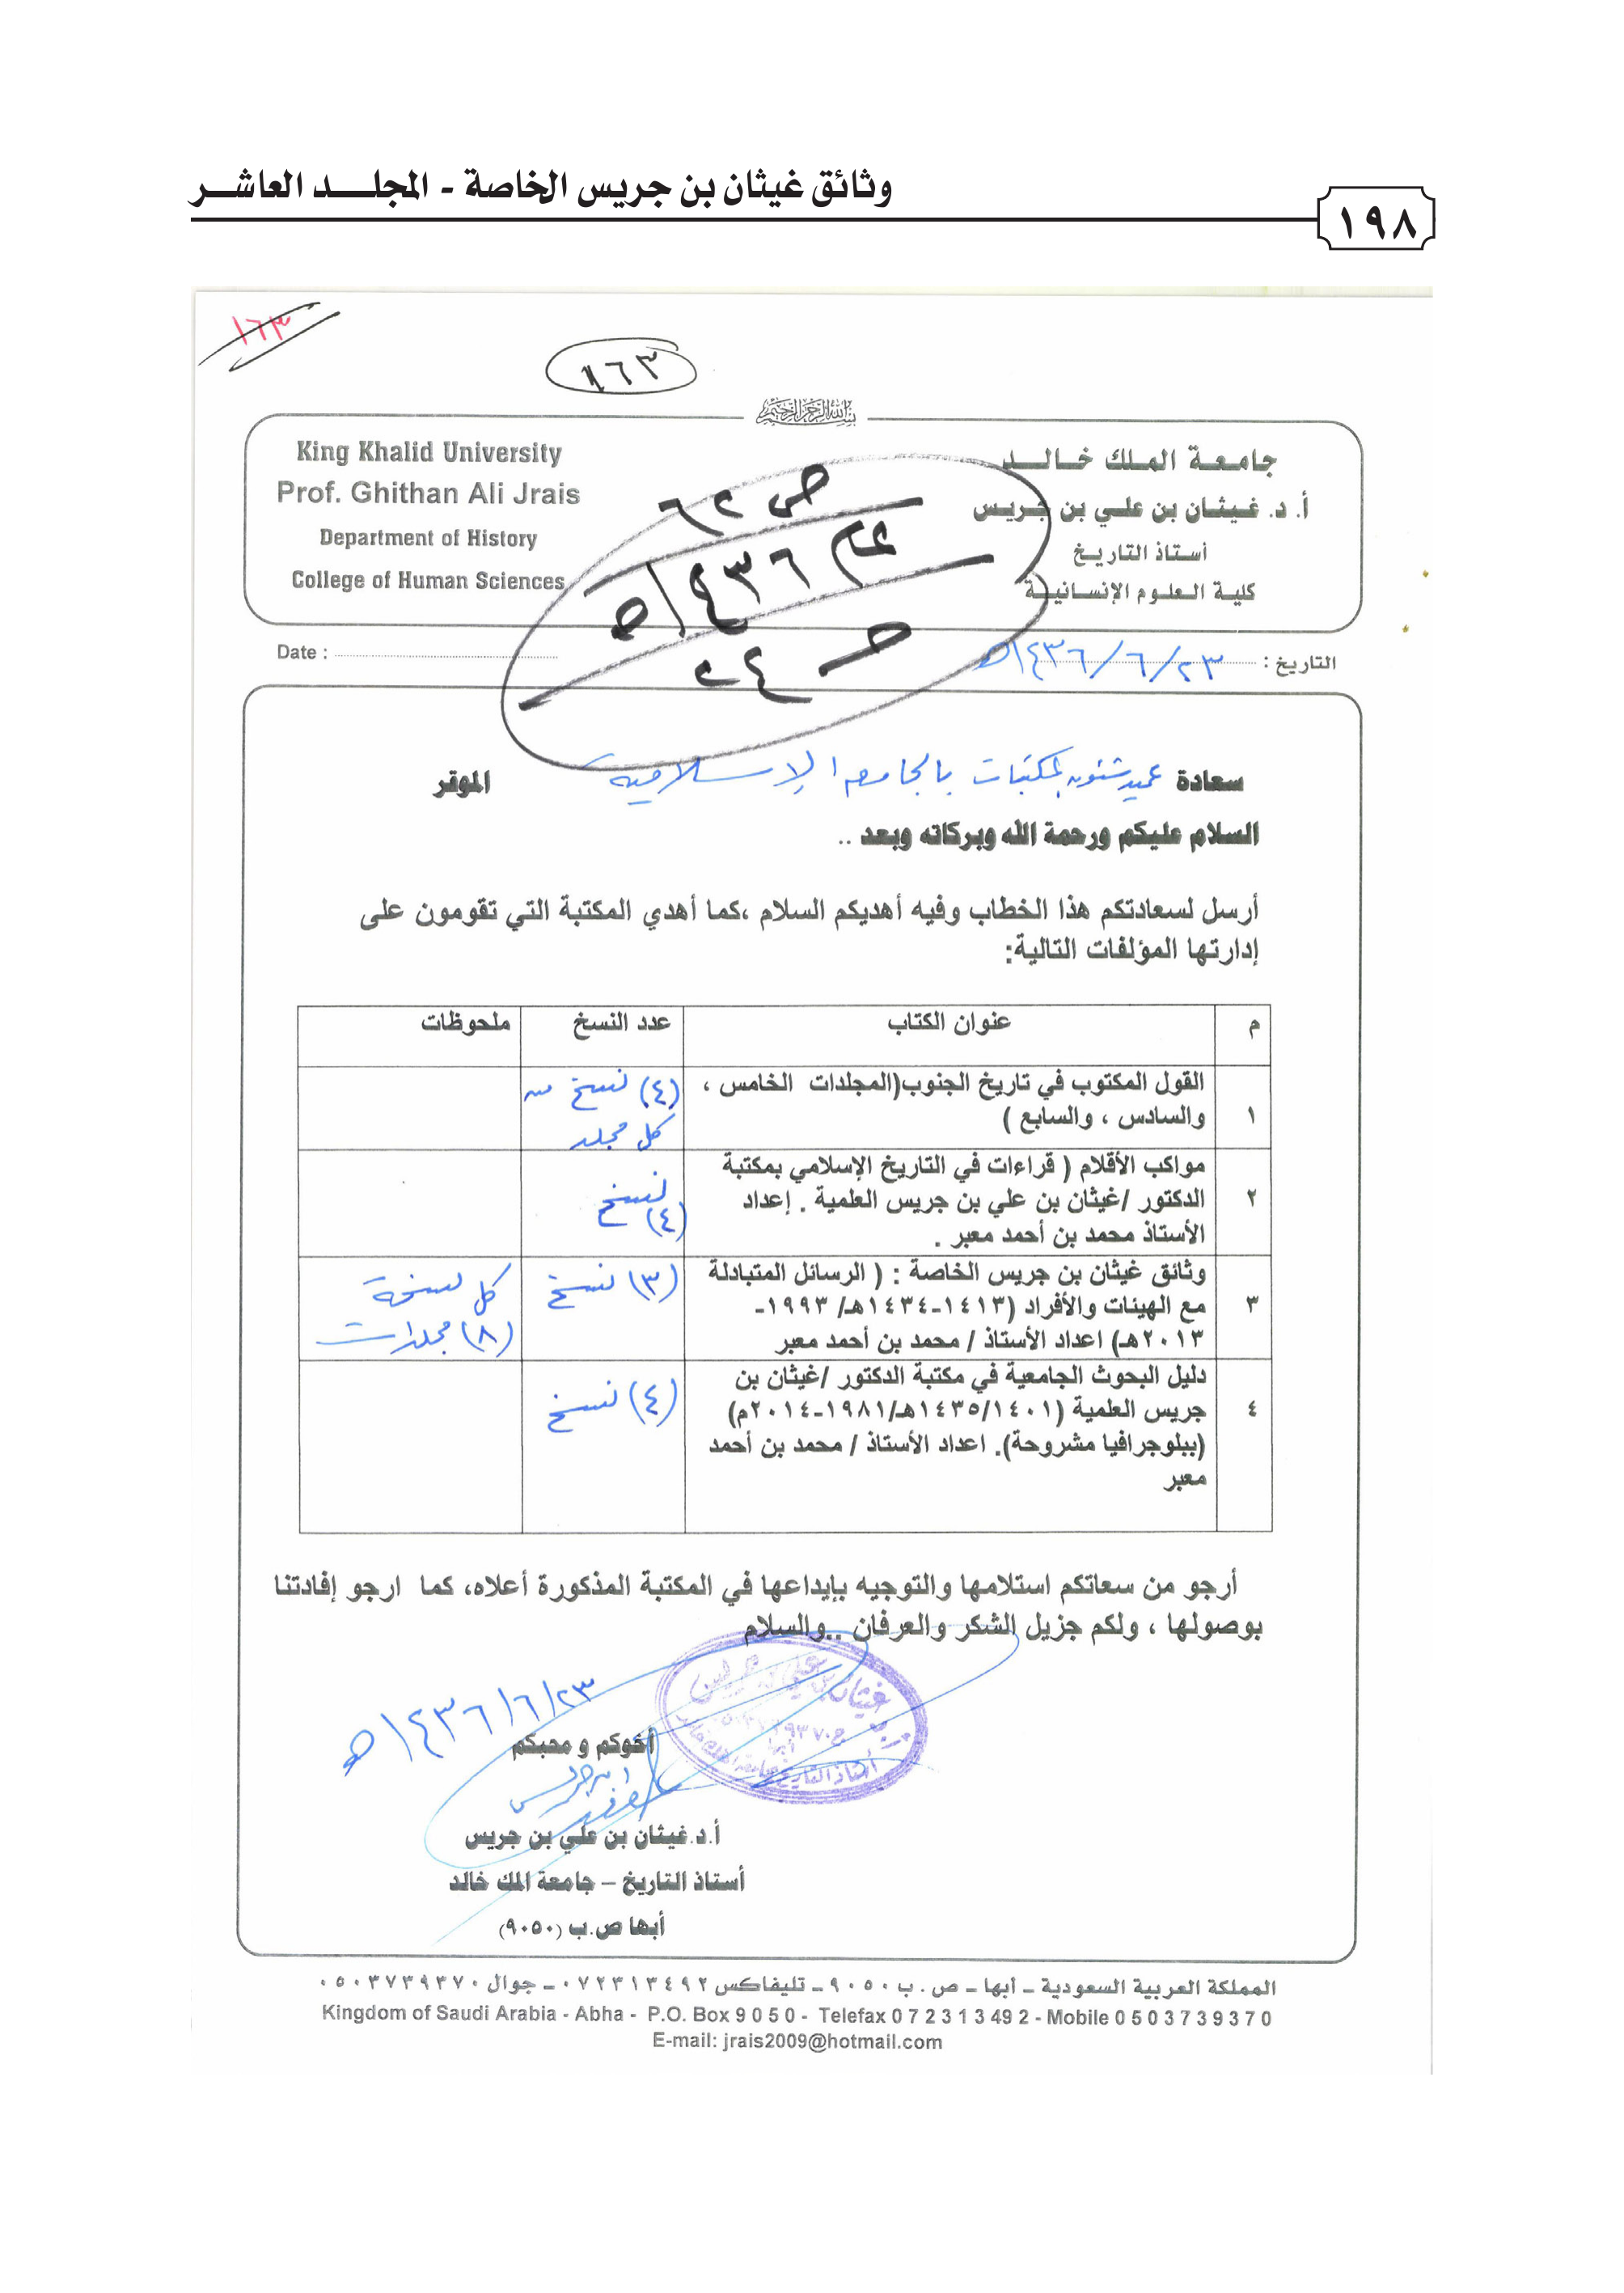 وثائق غيثان بن جريس الخاصة - المجلــد العاشــر
١٩٨
١٦٣
١٦٣
بسم الله الرحمن الرحيم
King Khalid University
Prof. Ghithan Ali Jrais
Department of History
College of Human Sciences
جامعة الملك خالد
أ. د. غيثان بن علي بن جريس
أستاذ التاريخ
كلية العلوم الإنسانية
ص ٦٢
عام ١٤٣٦هـ
حـ ٢٤
Date :
التاريخ : ٢٣/٦/١٤٣٦هـ
سعادة عميد شئون المكتبات بالجامعه الإسلامية الموقر
السلام عليكم ورحمة الله وبركاته وبعد ..
أرسل لسعادتكم هذا الخطاب وفيه أهديكم السلام ،كما أهدي المكتبة التي تقومون على
إدارتها المؤلفات التالية:
م عنوان الكتاب عدد النسخ ملحوظات
١ القول المكتوب في تاريخ الجنوب(المجلدات الخامس ، والسادس ، والسابع ) (٤) نسخ من كل مجلد
٢ مواكب الأقلام ( قراءات في التاريخ الإسلامي بمكتبة الدكتور /غيثان بن علي بن جريس العلمية . إعداد الأستاذ محمد بن أحمد معبر . (٤) نسخ
٣ وثائق غيثان بن جريس الخاصة : ( الرسائل المتبادلة مع الهيئات والأفراد (١٤١٣-١٤٣٤هـ/ ١٩٩٣-٢٠١٣هـ) اعداد الأستاذ / محمد بن أحمد معبر (٣) نسخ كل نسخة (٨) مجلدات
٤ دليل البحوث الجامعية في مكتبة الدكتور /غيثان بن جريس العلمية (١٤٣٥/١٤٠١هـ/١٩٨١-٢٠١٤م) (ببلوجرافيا مشروحة). اعداد الأستاذ / محمد بن أحمد معبر (٤) نسخ
أرجو من سعاتكم استلامها والتوجيه بإيداعها في المكتبة المذكورة أعلاه، كما ارجو إفادتنا
بوصولها ، ولكم جزيل الشكر والعرفان ..والسلام
٢٣/٦/١٤٣٦هـ
أخوكم و محبكم
أ.د.غيثان بن علي بن جريس
أستاذ التاريخ – جامعة الملك خالد
أبها ص.ب (٩٠٥٠)
المملكة العربية السعودية – أبها – ص . ب ٩٠٥٠ – تليفاكس ٠٧٢٣١٣٤٩٢ – جوال ٠٥٠٣٧٣٩٣٧٠
Kingdom of Saudi Arabia - Abha - P.O. Box 9 0 5 0 - Telefax 0 7 2 3 1 3 49 2 - Mobile 0 5 0 3 7 3 9 3 7 0
E-mail: jrais2009@hotmail.com